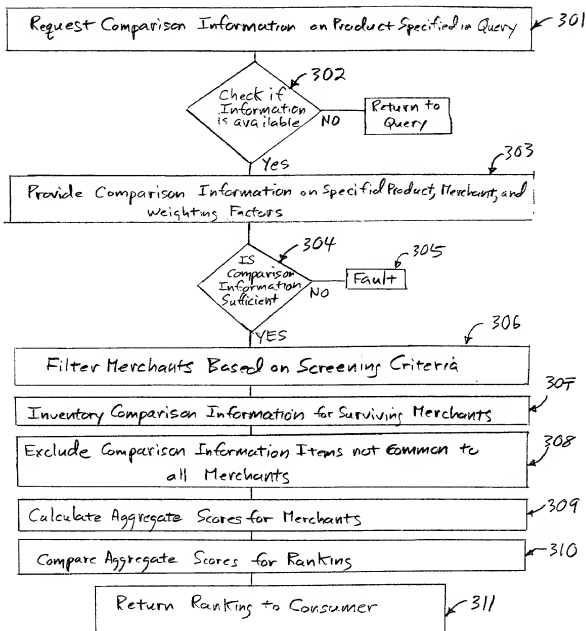 Request Comparison Information on Product Specified in Query
301
302
Check if
Information
is available
NO
Return to
Query
Yes
303
Provide Comparison Information on Specific Product, Merchant, and
Weighting Factors
304
Is
Comparison
Information
Sufficient
NO
305
Fault
YES
306
Filter Merchants Based on Screening Criteria
307
Inventory Comparison Information for Surviving Merchants
308
Exclude Comparison Information Items not Common to
all Merchants
309
Calculate Aggregate Scores for Merchants
310
Compare Aggregate Scores for Ranking
Return Ranking to Consumer
311